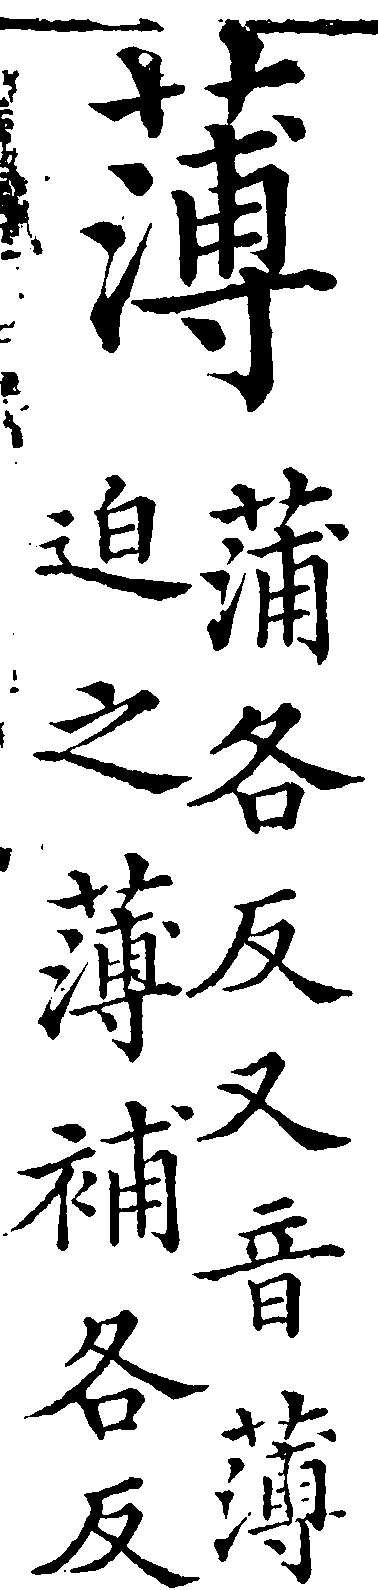 薄
蒲各反又音薄
迫之薄補各反